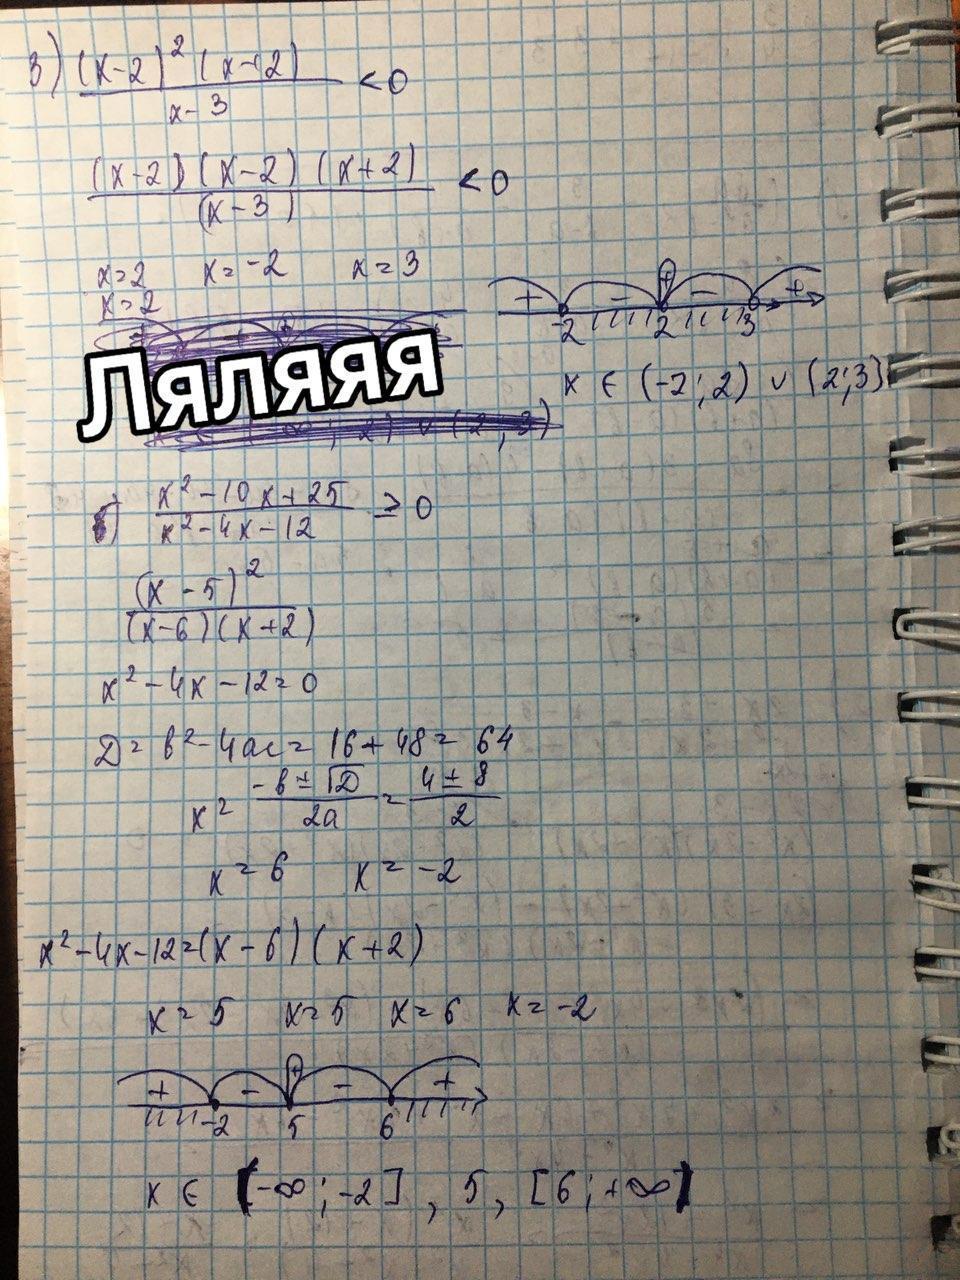 3) (x-2)² (x+2) / x-3 < 0
(x-2) (x-2) (x+2) / (x-3) < 0
x=2 x=-2 x=3
x=2
+ - + - +
-2 2 3
Ляляяя
x ∈ (-2; 2) ∪ (2; 3)
б) x²-10x+25 / x²-4x-12 ≥ 0
(x-5)² / (x-6)(x+2)
x²-4x-12=0
D= b²-4ac= 16+48= 64
x= -b±√D / 2a = 4±8 / 2
x=6 x=-2
x²-4x-12=(x-6)(x+2)
x=5 x=5 x=6 x=-2
+ - + - +
-2 5 6
x ∈ (-∞; -2] , 5, [6; +∞)